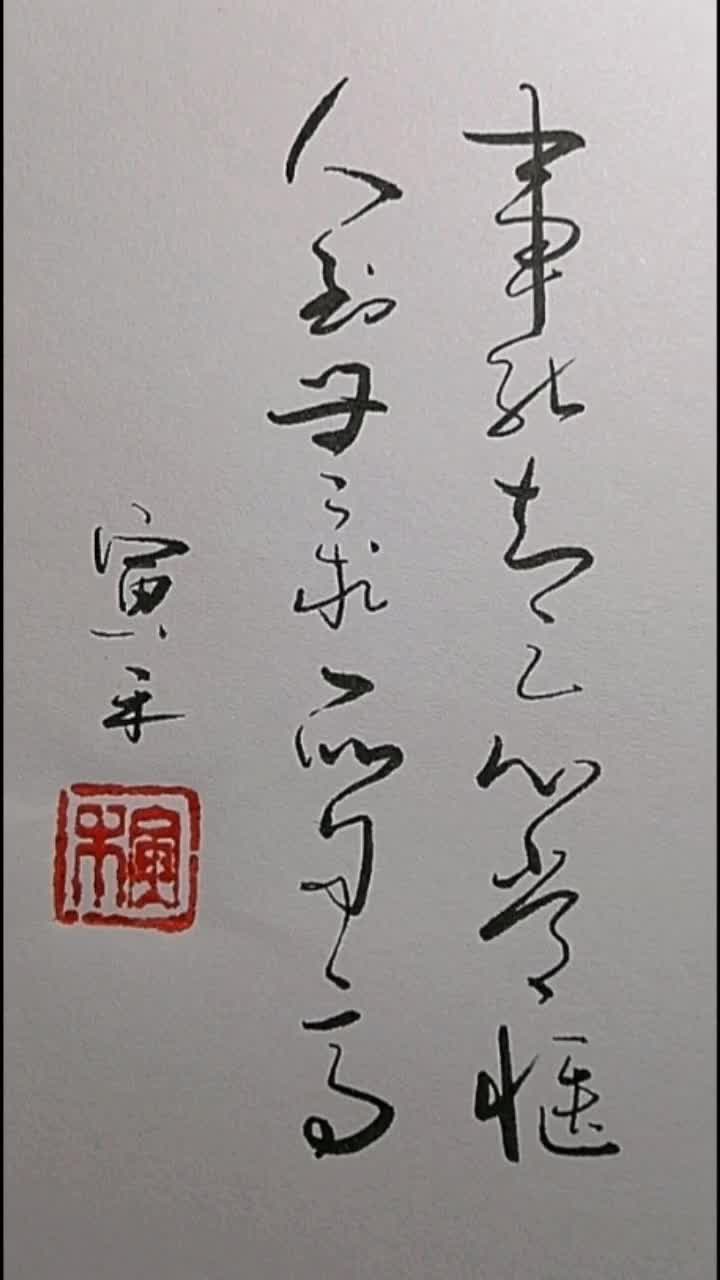 事能知足心常惬
人到無求品自高
寅